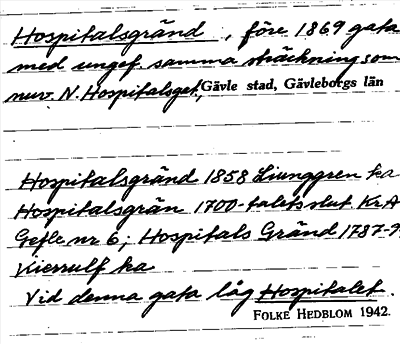 Hospitalsgränd, före 1869 gata
med ungef. samma sträckning som
nuv. N. Hospitalsgat., Gävle stad, Gävleborgs län
Hospitalsgränd 1858 Ljunggren ka
Hospitalsgrän 1700-talets slut. Kr A
Gefle nr 6; Hospitals Gränd 1787-9
Kierrulf ka
Vid denna gata låg Hospitalet.
FOLKE HEDBLOM 1942.